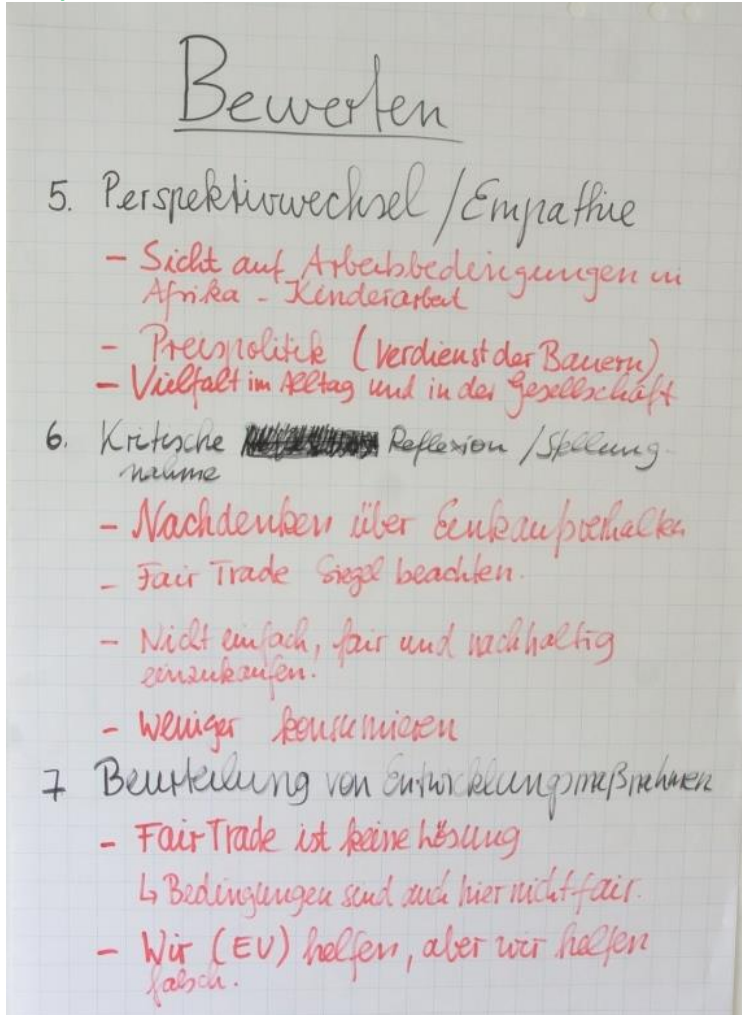 Bewerten
5. Perspektivwechsel / Empathie
- Sicht auf Arbeitsbedingungen in
Afrika - Kinderarbeit
- Preispolitik (Verdienst der Bauern)
- Vielfalt im Alltag und in der Gesellschaft
6. Kritische Reflexion / Stellung-
nahme
- Nachdenken über Einkaufverhalten
- Fair Trade Siegel beachten.
- Nicht einfach, fair und nachhaltig
einzukaufen.
- Weniger konsumieren
7 Beurteilung von Entwicklungsmaßnahmen
- Fair Trade ist keine Lösung
↳ Bedingungen sind auch hier nicht fair.
- Wir (EU) helfen, aber wir helfen
falsch.